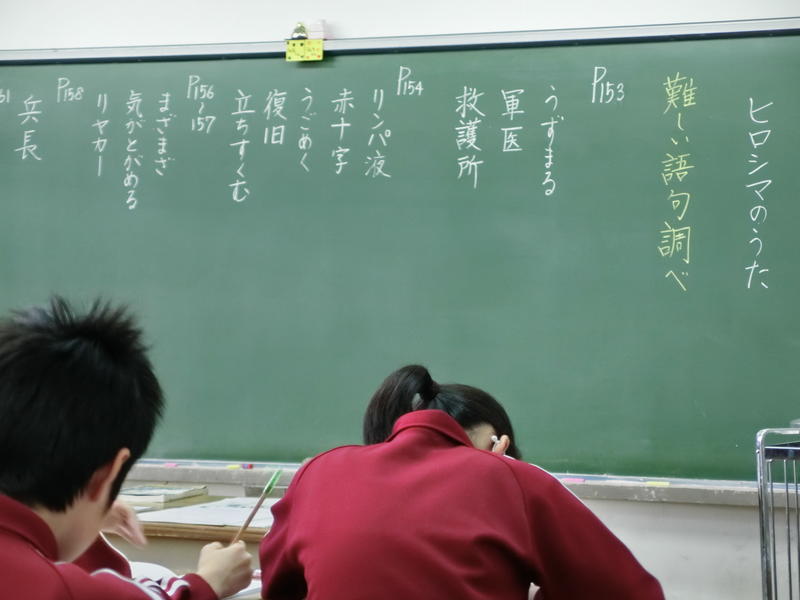 ヒロシマのうた
難しい語句調べ
P153
うずまる
軍医
救護所
P154
リンパ液
赤十字
うごめく
復旧
立ちすくむ
P156～157
まざまざ
気がとがめる
リヤカー
P158
兵長